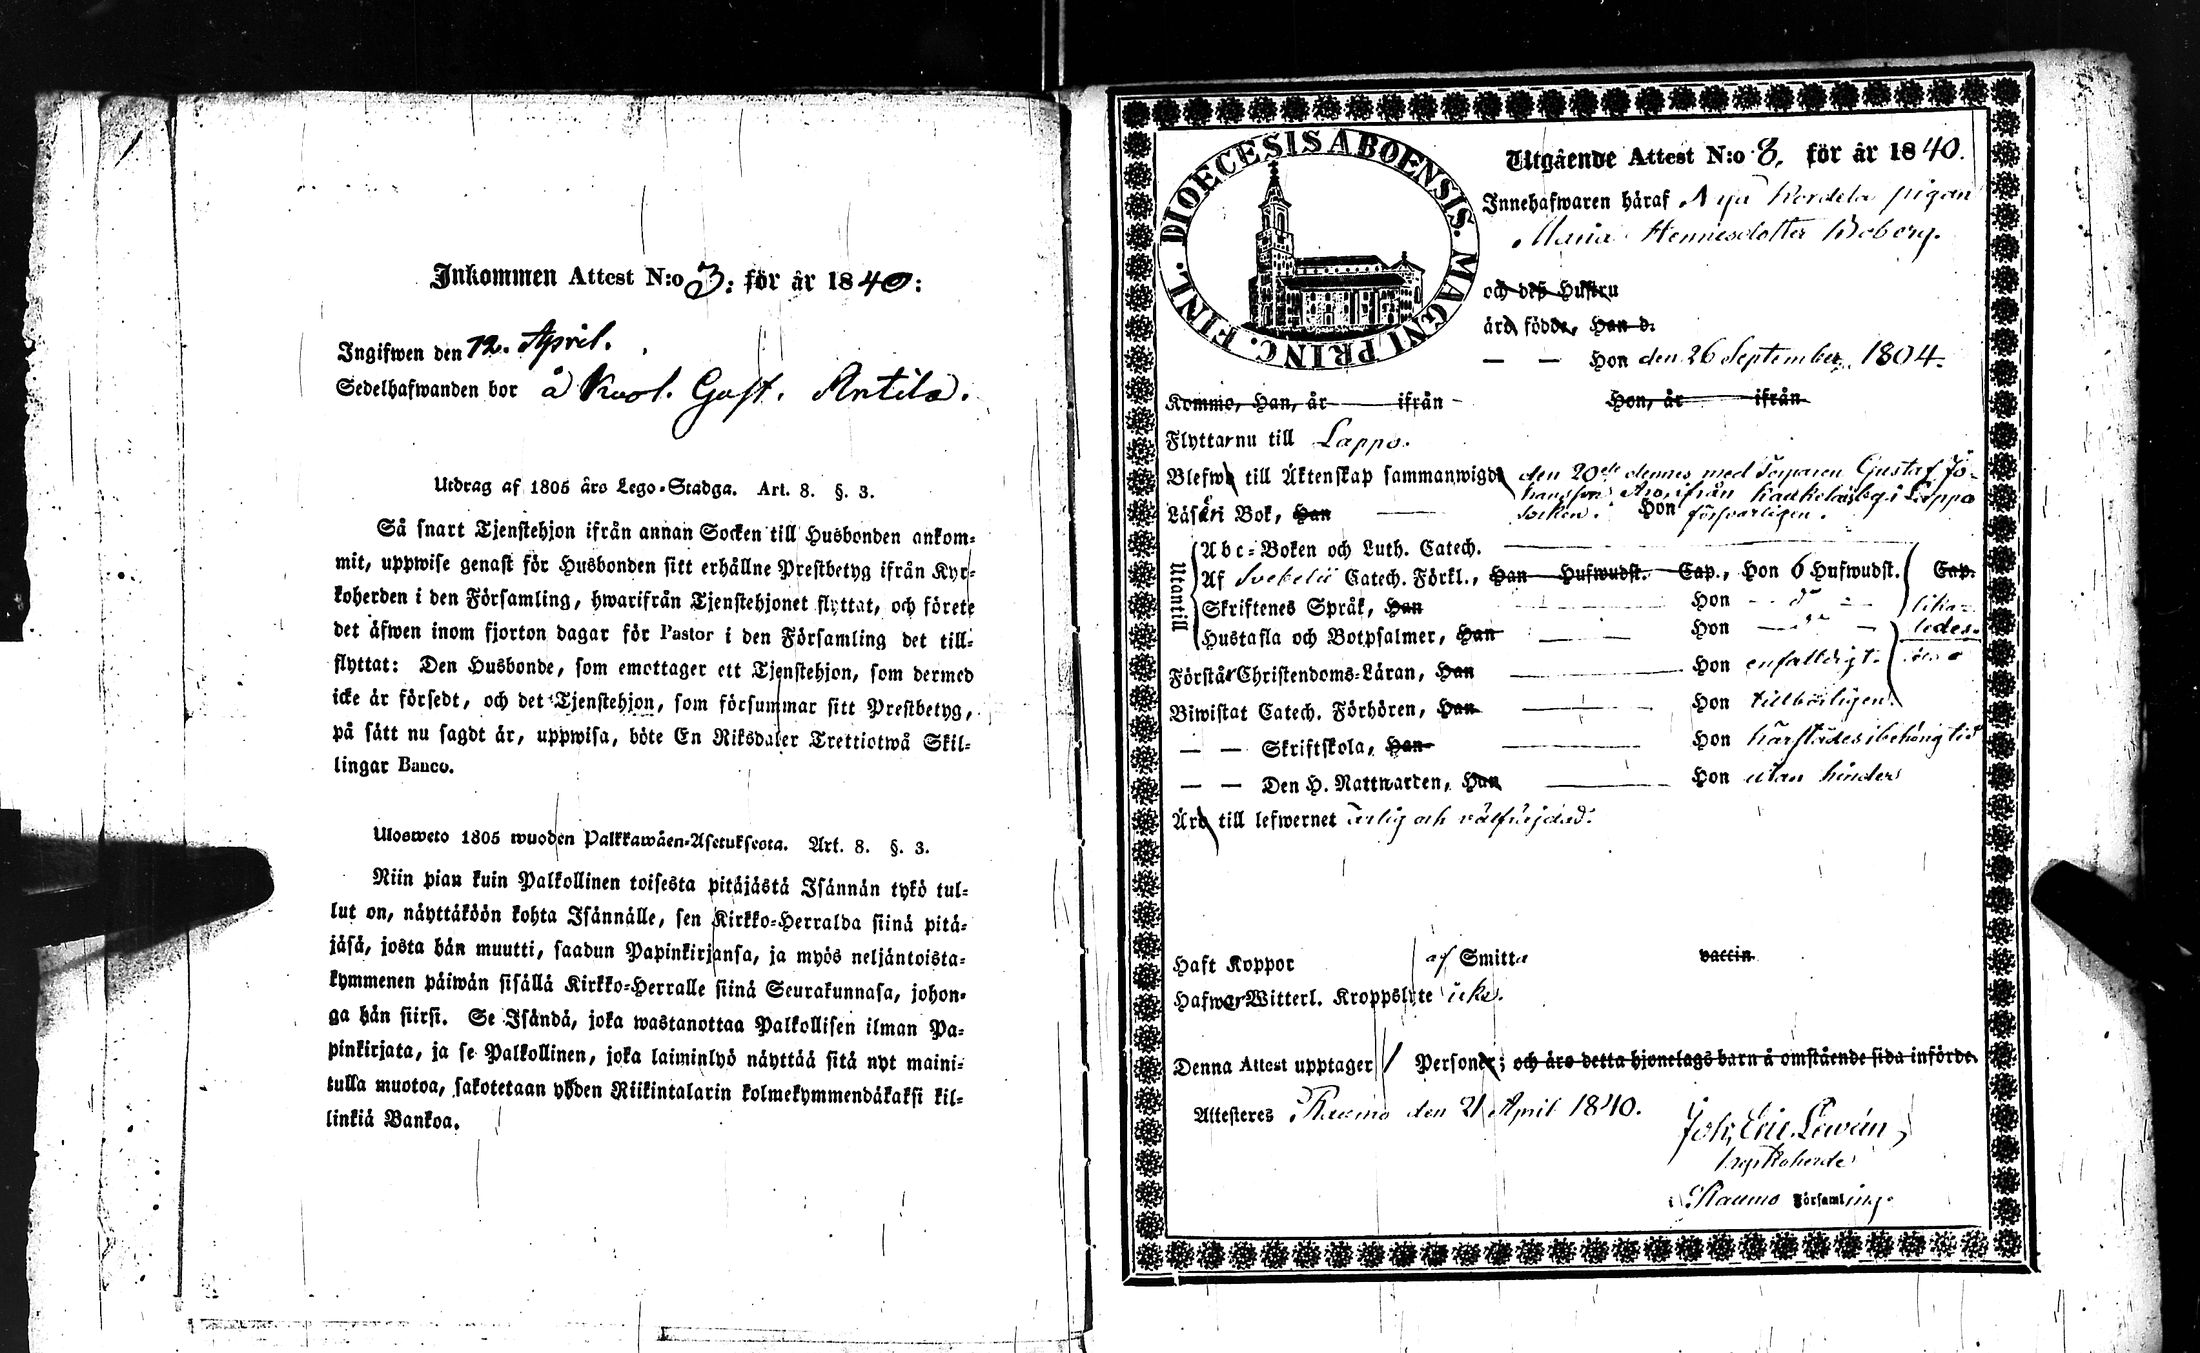 Inkommen Attest N:o 3: för år 1840:
Ingifwen den 12. April.
Sedelhafwanden bor å Kuol. Gust. Antila.
Utdrag af 1805 års Lego-Stadga. Art. 8. §. 3.
Så snart Tjenstehjon ifrån annan Socken till Husbonden ankom-
mit, uppwise genast för Husbonden sitt erhållne Prestbetyg ifrån Kyr-
koherden i den Församling, hwarifrån Tjenstehjonet flyttat, och förete
det äfwen inom fjorton dagar för Pastor i den Församling det till-
flyttat: Den Husbonde, som emottager ett Tjenstehjon, som dermed
icke är försedt, och det Tjenstehjon, som försummar sitt Prestbetyg,
på sätt nu sagdt är, uppwisa, böte En Riksdaler Trettiotwå Skil-
lingar Banco.
Ulosweto 1805 wuoden Palkkawäen-Asetuksesta. Art. 8. §. 3.
Niin pian kuin Palkollinen toisesta pitäjästä Isännän tykö tul-
lut on, näyttäköön kohta Isännälle, sen Kirkko-Herralda siinä pitä-
jäsä, josta hän muutti, saadun Papinkirjansa, ja myös neljäntoista-
kymmenen päiwän sisällä Kirkko-Herralle siinä Seurakunnasa, johon-
ga hän siirsi. Se Isändä, joka wastanottaa Palkollisen ilman Pa-
pinkirjata, ja se Palkollinen, joka laiminlyö näyttää sitä nyt maini-
tulla muotoa, sakotetaan yhden Riikintalarin kolmekymmendäkaksi kil-
linkiä Bankoa.
DIOECESIS ABOENSIS. MAGNI PRINC. FINL.
Utgående Attest N:o 3. för år 1840.
Innehafwaren häraf Nya Kordela pigan
Maria Hennesdotter
och deß Hustru
äro födde, Han d.
— — Hon den 26 September 1804.
Komme, Han, år — ifrån — Hon, år — ifrån
Flyttar nu till Lappo.
Blefwo till Äktenskap sammanwigde den 20de dennes med Gustaf Jo-
hansson ifrån i Lappo
Läser i Bok, Han — socken. Hon försvarligen.
Utantill
Abc-Boken och Luth. Catech.
Af Svebelii Catech. Förkl., Han Hufwudst. Cap., Hon 6 Hufwudst. Cap.
Skriftenes Språk, Han — Hon — do — lika-
Hustafla och Botpsalmer, Han — Hon — do — ledes.
Förstår Christendoms-Läran, Han — Hon enfaldigt.
Biwistat Catech. Förhören, Han — Hon tillbörligen.
— — Skriftskola, Han — Hon härstädes i behörig tid
— — Den H. Nattwarden, Han — Hon utan hinder
Äro till lefwernet ärlig och välfrejdad.
Haft Koppor af Smitta vaccin.
Hafwer Witterl. Kroppslyte icke.
Denna Attest upptager 1 Personer; och äro detta hjonelags barn å omstående sida införde.
Attesteres Raumo den 21 April 1840.
Joh. Eric Lewén,
kyrkoherde
i Raumo Församling.